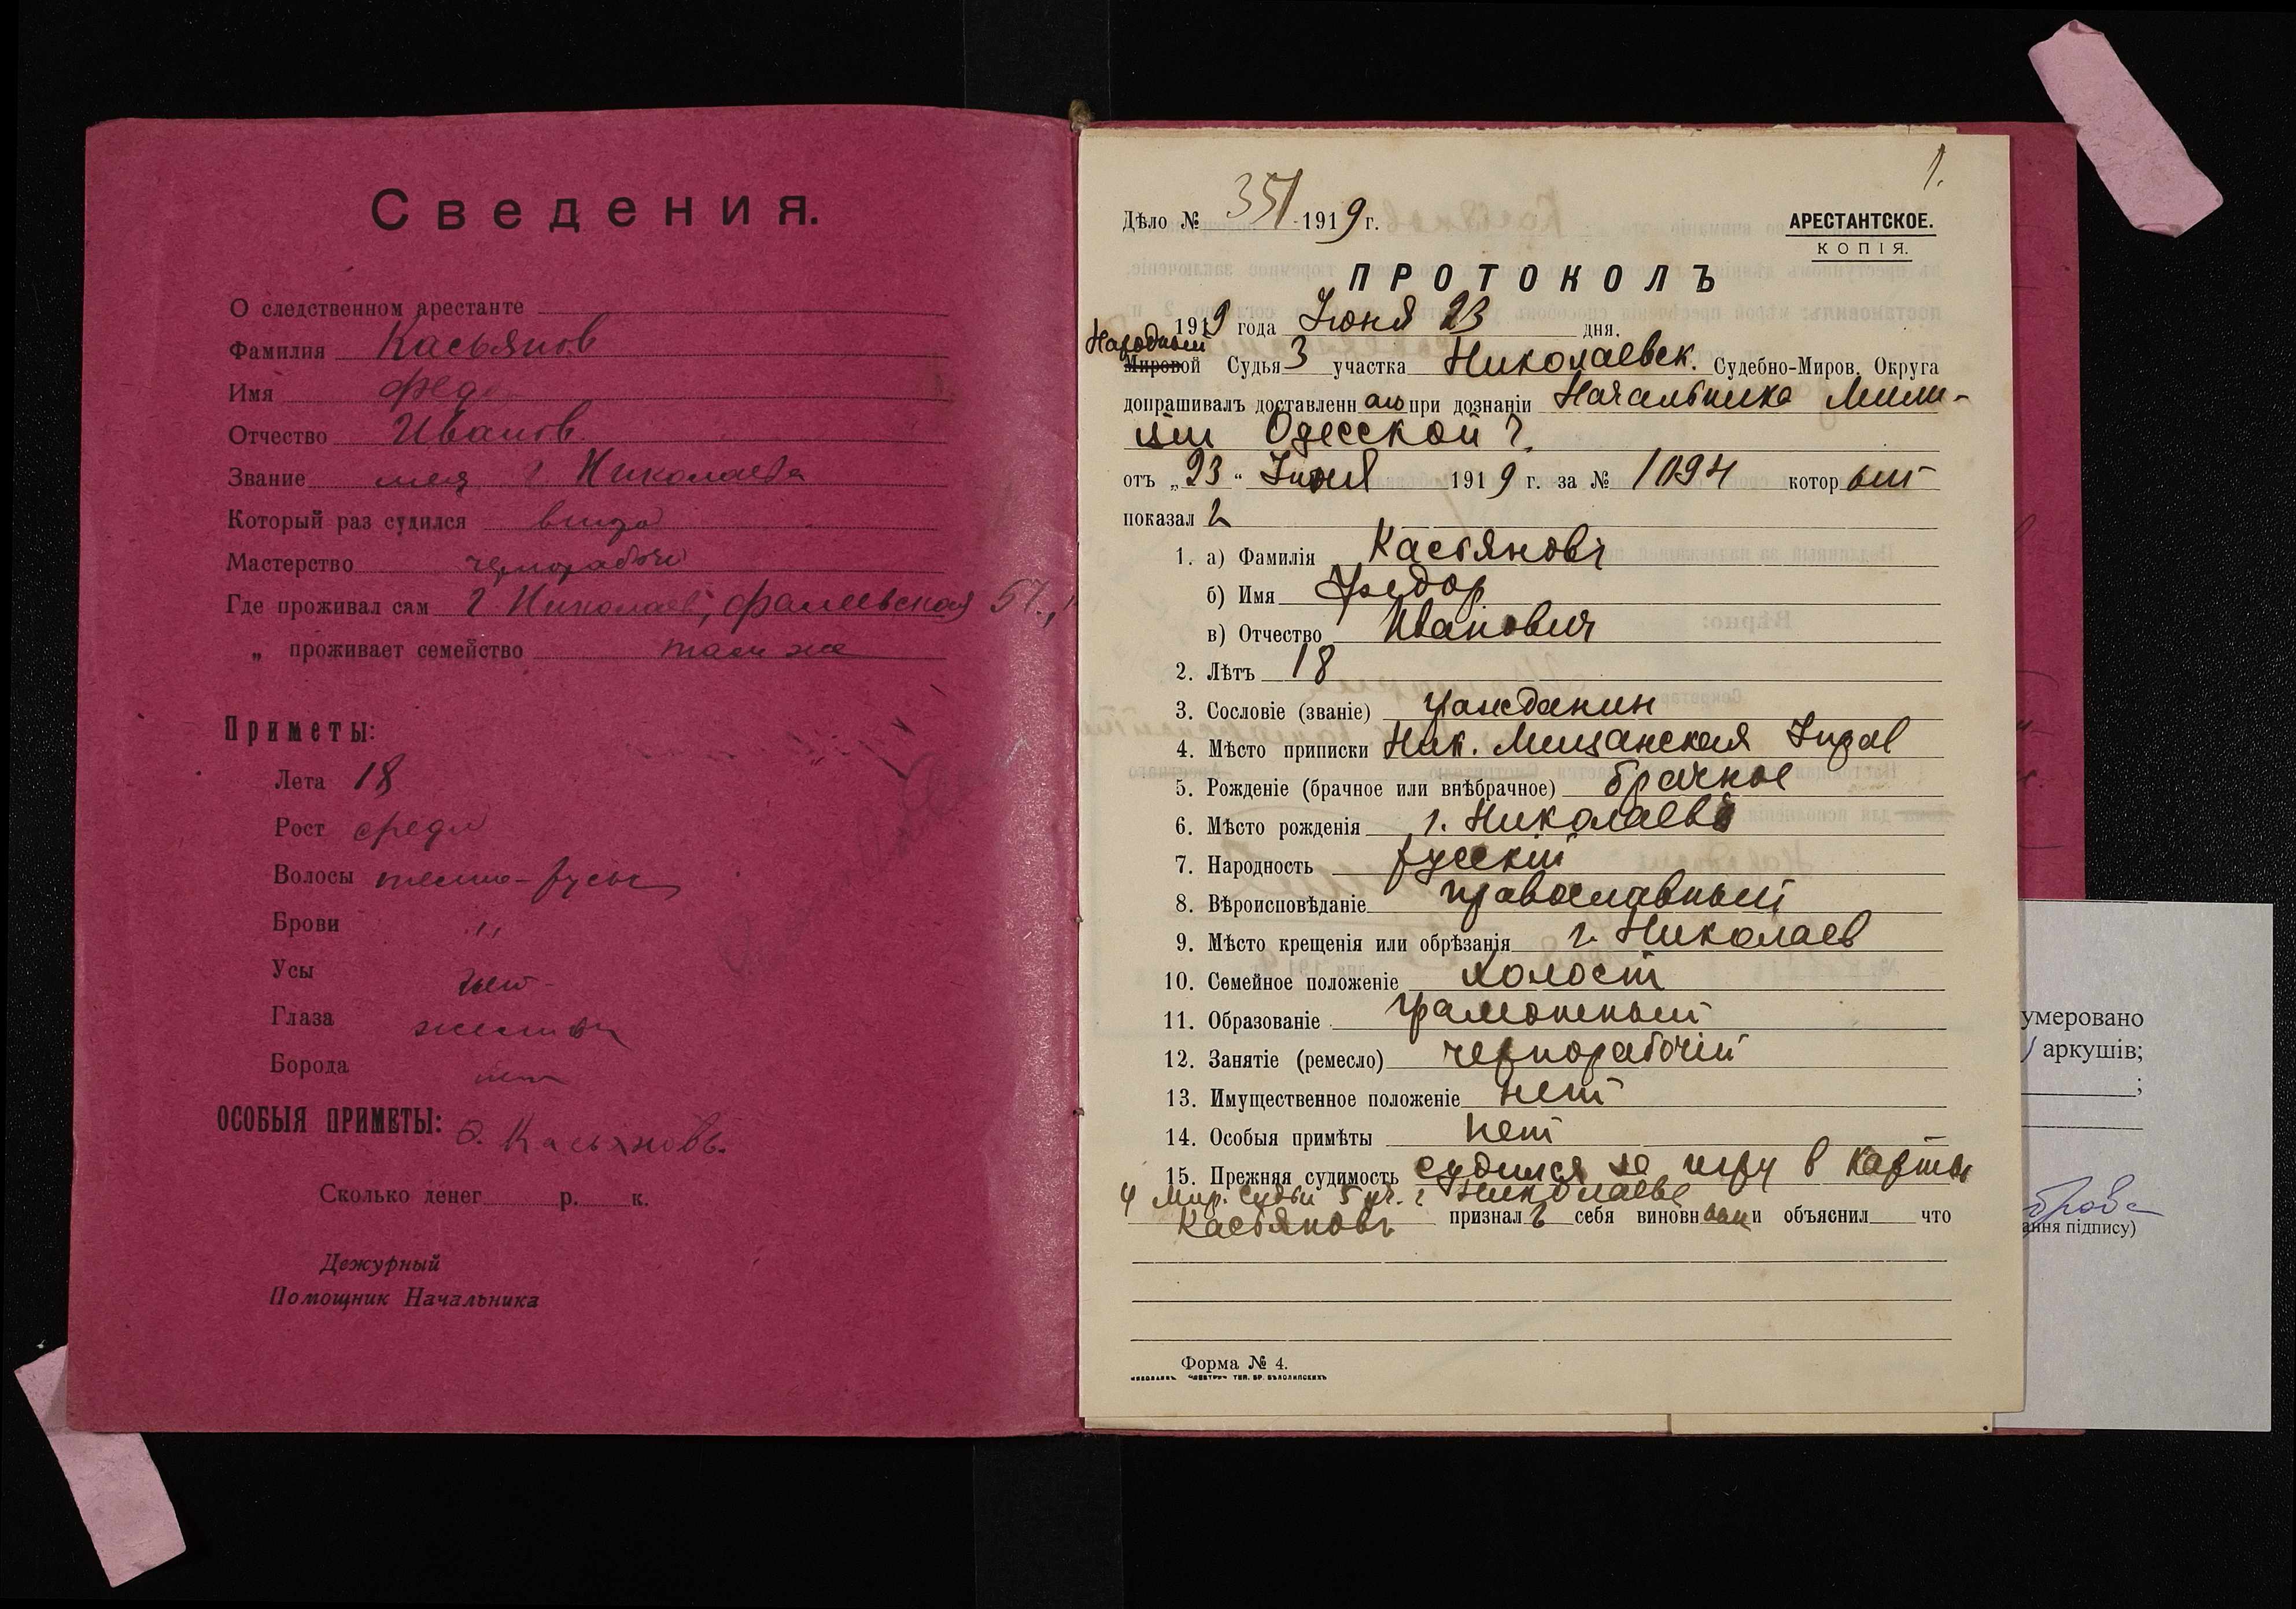 Сведения.
О следственном арестанте
Фамилия Касьянов
Имя Федо
Отчество Иванов
Звание мещ г Николаева
Который раз судился
Мастерство чернорабочи
Где проживал сам г Николаев, Фалеевская 57
„ проживает семейство там же
Приметы:
Лета 18
Рост средн
Волосы темно-русы
Брови "
Усы нет
Глаза
Борода нет
ОСОБЫЯ ПРИМЕТЫ: Ф. Касьяновъ.
Сколько денег р. к.
Дежурный
Помощник Начальника
1.
Дѣло № 351 1919 г.
АРЕСТАНТСКОЕ.
КОПІЯ.
ПРОТОКОЛЪ
1919 года Іюня 23 дня.
Народный
Мировой Судья 3 участка Николаевск. Судебно-Миров. Округа
допрашивалъ доставленн аго при дознаніи Начальника Мили-
ціи Одесской г.
отъ „23“ Іюня 1919 г. за № 1094 котор ый
показал ъ
1. а) Фамилія Касьяновъ
б) Имя Федор
в) Отчество Иванович
2. Лѣтъ 18
3. Сословіе (званіе) гражданин
4. Мѣсто приписки Ник. Мещанская Управ
5. Рожденіе (брачное или внѣбрачное) брачное
6. Мѣсто рожденія г. Николаев
7. Народность русскій
8. Вѣроисповѣданіе православный
9. Мѣсто крещенія или обрѣзанія г. Николаев
10. Семейное положеніе холост
11. Образованіе грамотный
12. Занятіе (ремесло) чернорабочій
13. Имущественное положеніе нет
14. Особыя примѣты нет
15. Прежняя судимость судился за игру в карты
у Мир. Судьи 5 уч. г Николаеве
Касьяновъ признал ъ себя виновн ым и объяснил что
Форма № 4.
умеровано
аркушів;
;
ання підпису)